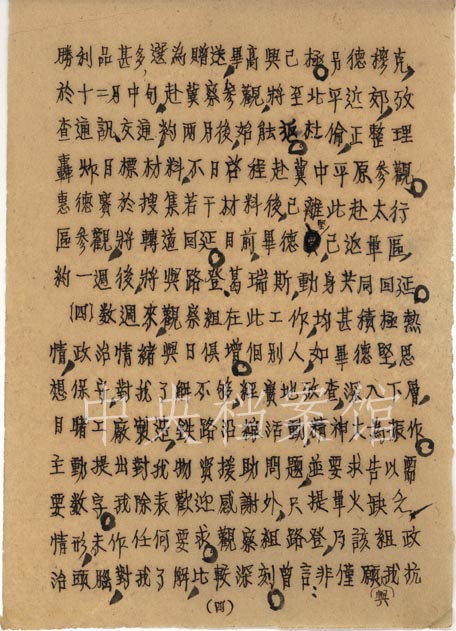 勝利品甚多選為贈送畢高興已極另德穆克
於十二月中旬赴冀察參觀將至北平近郊攷
查通訊交通約兩月後始能返杜倫正整理
轟炸目標材料不日啓程赴冀中平原參觀
惠德賽於搜集若干材料後已離此赴太行
區參觀將轉道回延目前畢德已返軍區
約一週後將與路登葛瑞斯動身共同回延
(四)数週來觀察組在此工作均甚積極熱
情政治情緒與日俱增個別人如畢德堅思
想保守對我了解不够經實地攷查深入下層
目睹工廠製造鉄路沿線活動精神大為振作
主動提出對我物資援助問題並要求告以需
要数字我除表歡迎感謝外只提軍火缺乏
情形未作任何要求觀察組路登乃該組政
治頭腦對我了解比較深刻曾言非僅願我抗
與
(四)
中央档案馆